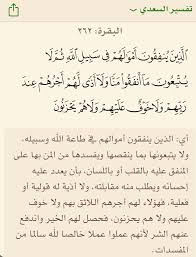 تفسير السعدي
البقرة: ٢٦٢
الَّذِينَ يُنفِقُونَ أَمْوَالَهُمْ فِي سَبِيلِ اللَّهِ ثُمَّ لَا
يُتْبِعُونَ مَا أَنفَقُوا مَنًّا وَلَا أَذًى لَّهُمْ أَجْرُهُمْ عِندَ
رَبِّهِمْ وَلَا خَوْفٌ عَلَيْهِمْ وَلَا هُمْ يَحْزَنُونَ
أي: الذين ينفقون أموالهم في طاعة الله وسبيله،
ولا يتبعونها بما ينقصها ويفسدها من المن بها على
المنفق عليه بالقلب أو باللسان، بأن يعدد عليه
إحسانه ويطلب منه مقابلته، ولا أذية له قولية أو
فعلية، فهؤلاء لهم أجرهم اللائق بهم ولا خوف
عليهم ولا هم يحزنون، فحصل لهم الخير واندفع
عنهم الشر لأنهم عملوا عملا خالصا لله سالما من
المفسدات.